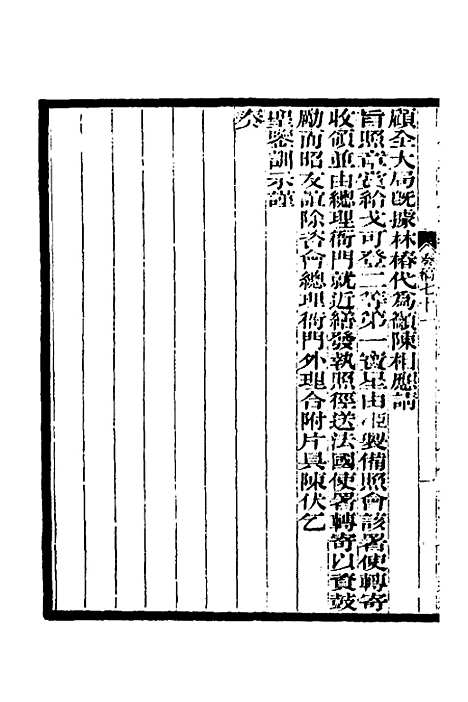 奏稿七十一
顧全大局旣據林椿代爲籲陳相應請
旨照章賞給戈可登二等第一寶星由臣製備照會該署使轉寄
收領並由總理衙門就近繕發執照徑送法國使署轉寄以資鼓
勵而昭友誼除咨會總理衙門外理合附片具陳伏乞
聖鑒訓示謹
奏